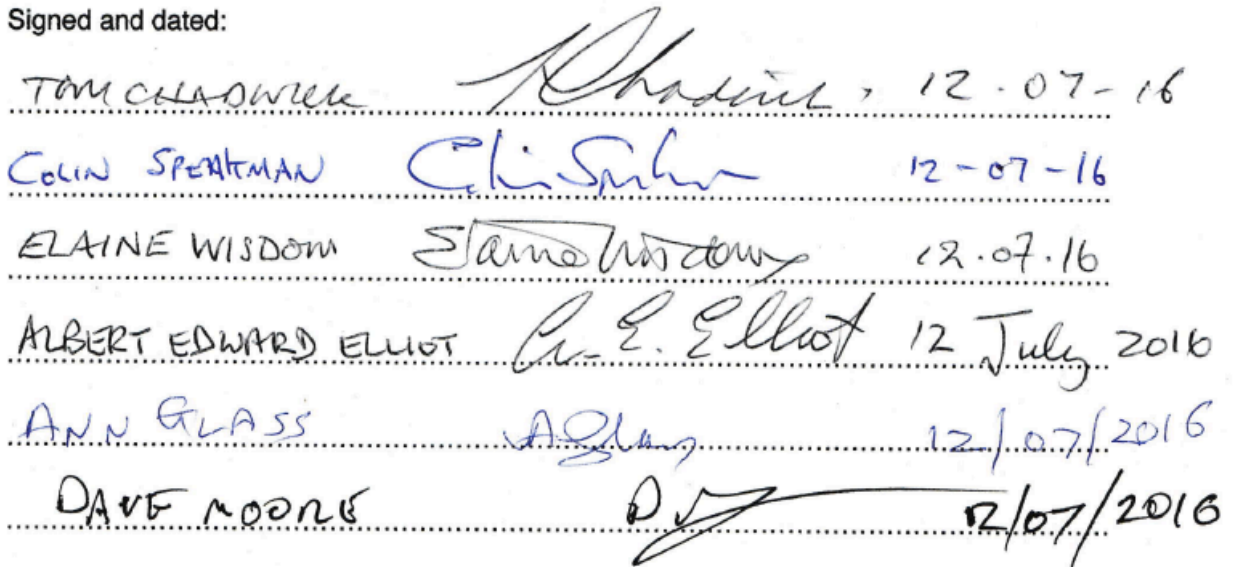 Signed and dated:
TOM CHADWICK Chadwick. 12.07-16
COLIN SPEAKMAN Colin Speakman 12-07-16
ELAINE WISDOM Elaine Wisdom 12.07.16
ALBERT EDWARD ELLIOT A. E. Elliot 12 July 2016
ANN GLASS A Glass 12/07/2016
DAVE MOORE D 12/07/2016